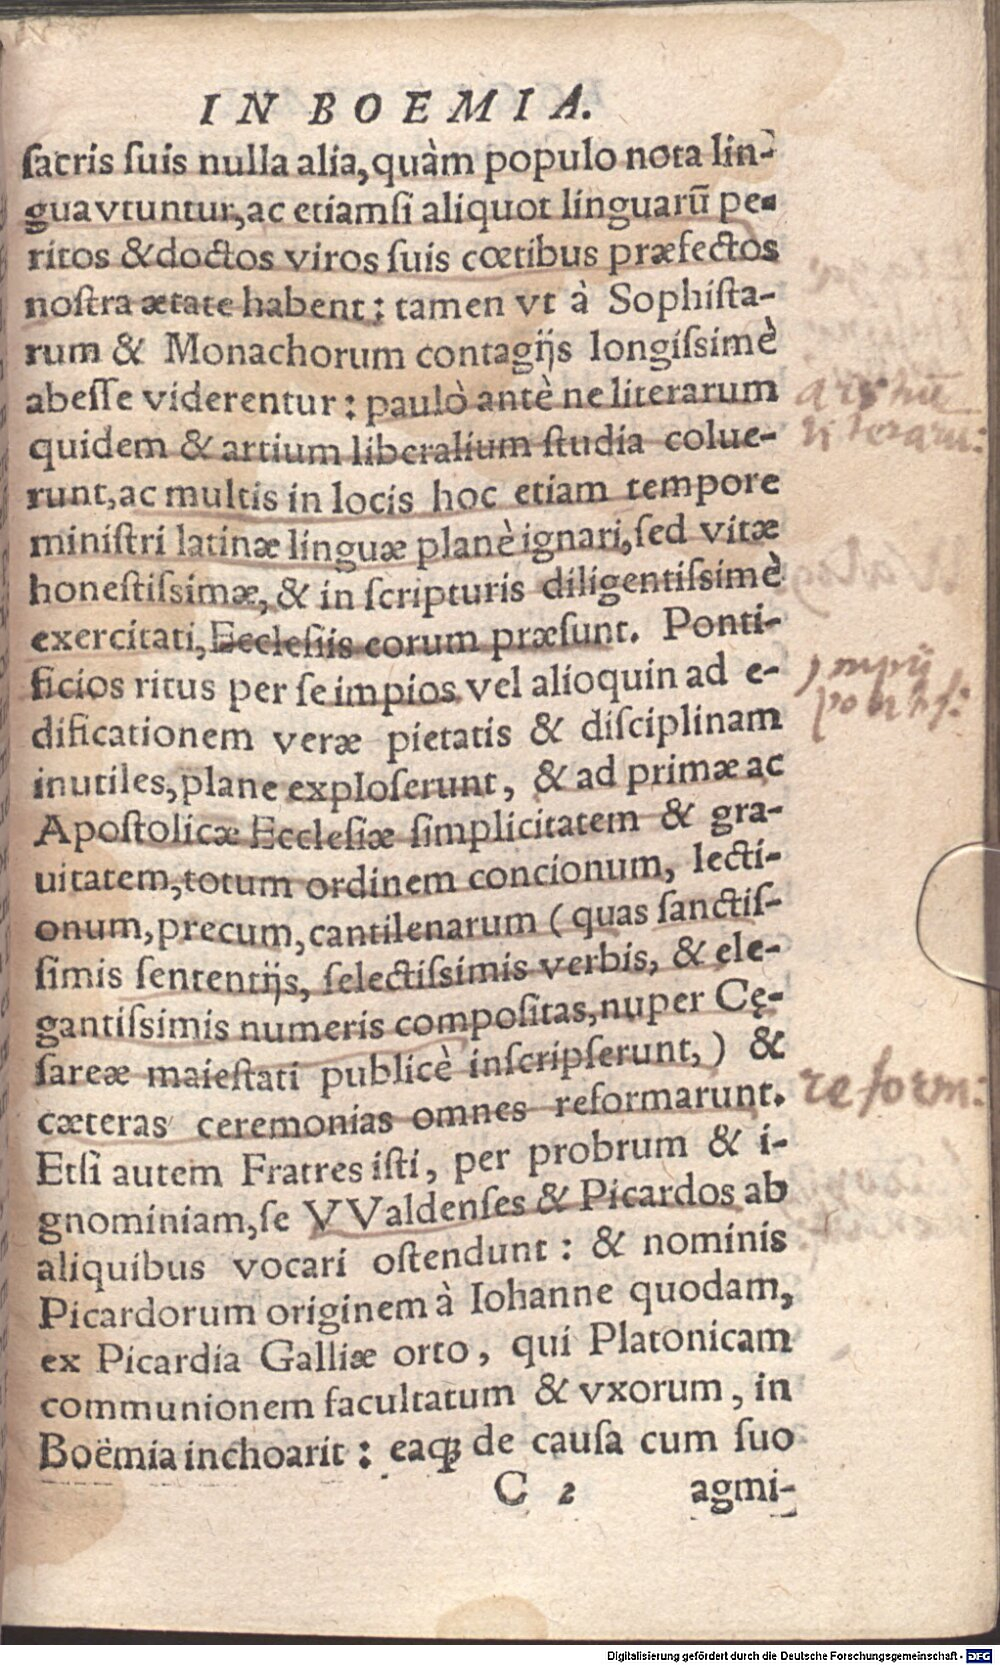 IN BOEMIA.
ſacris ſuis nulla alia, quàm populo nota lin-
gua vtuntur, ac etiamſi aliquot linguarū pe-
ritos & doctos viros ſuis cœtibus præfectos
noſtra ætate habent: tamen vt à Sophiſta-
rum & Monachorum contagijs longiſsimè
abeſſe viderentur: paulò antè ne literarum
quidem & artium liberalium ſtudia colue-
runt, ac multis in locis hoc etiam tempore
miniſtri latinæ linguæ planè ignari, ſed vitæ
honeſtiſsimæ, & in ſcripturis diligentiſsimè
exercitati, Eccleſiis eorum præſunt. Ponti-
ficios ritus per ſe impios vel alioquin ad e-
dificationem veræ pietatis & diſciplinam
inutiles, plane exploſerunt, & ad primæ ac
Apoſtolicæ Eccleſiæ ſimplicitatem & gra-
uitatem, totum ordinem concionum, lecti-
onum, precum, cantilenarum (quas ſanctiſ-
ſimis ſententijs, ſelectiſsimis verbis, & ele-
gantiſsimis numeris compoſitas, nuper Cę-
ſareæ maieſtati publicè inſcripſerunt,) &
cæteras ceremonias omnes reformarunt.
Etſi autem Fratres iſti, per probrum & i-
gnominiam, ſe VValdenſes & Picardos ab
aliquibus vocari oſtendunt: & nominis
Picardorum originem à Iohanne quodam,
ex Picardia Galliæ orto, qui Platonicam
communionem facultatum & vxorum, in
Boëmia inchoarit: eaqꝫ de cauſa cum ſuo
C 2 agmi-
literaru:
Impij
pontif:
reform:
Digitalisierung gefördert durch die Deutsche Forschungsgemeinschaft - DFG